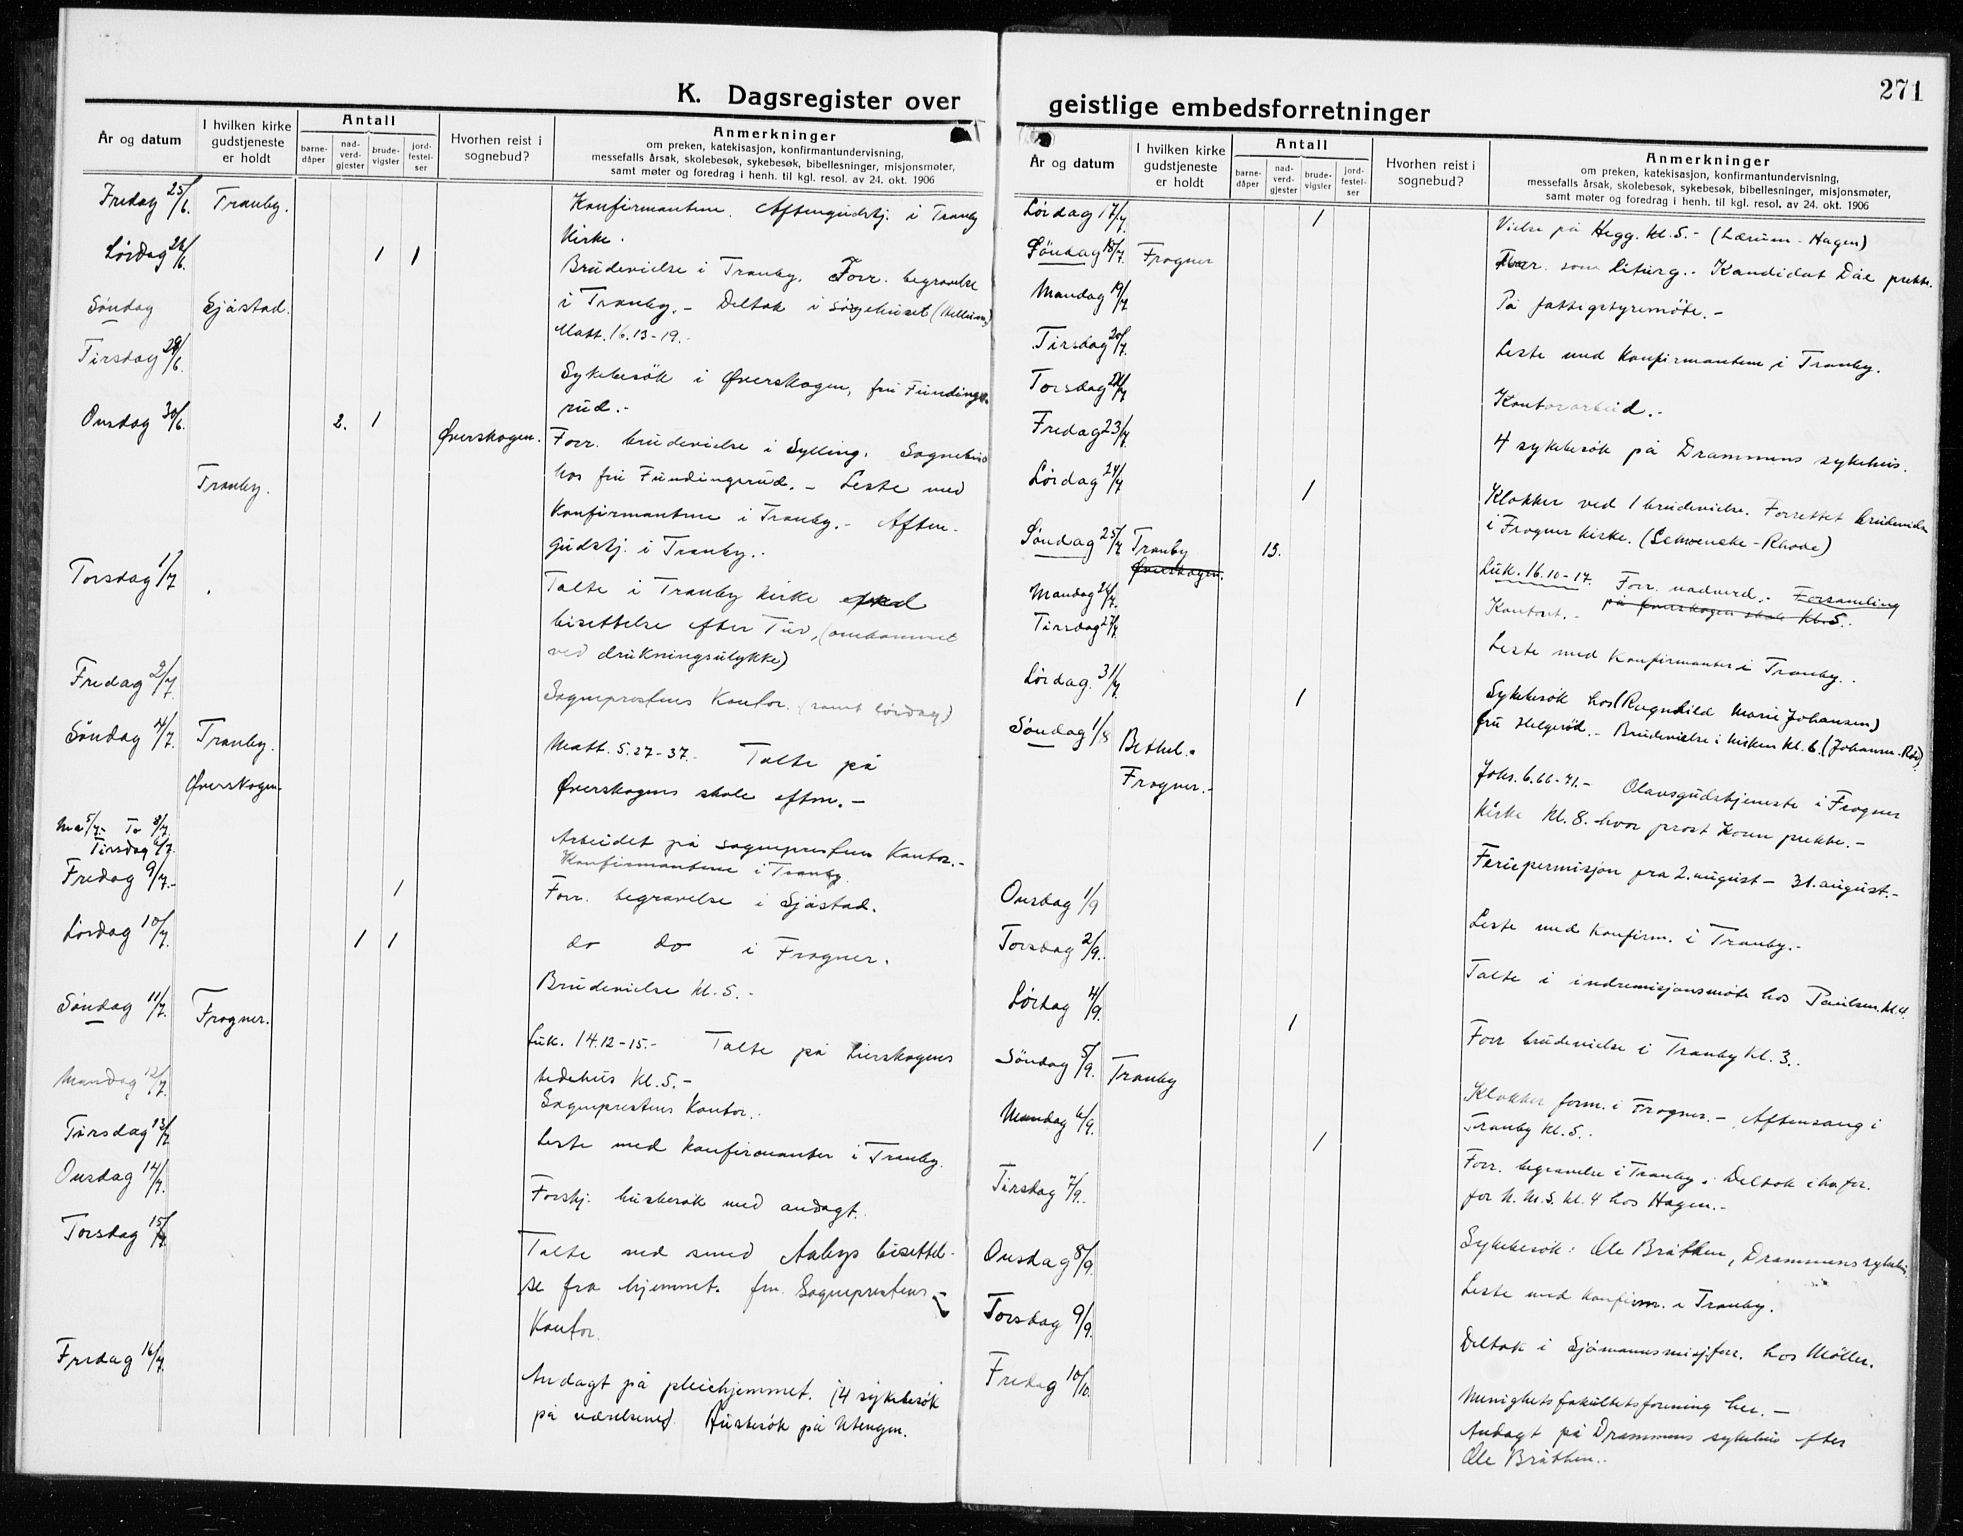 K. Dagsregister over
År og datum
I hvilken kirke gudstjeneste er holdt
Antall
barne-dåper
nad-verd-gjester
brude-vigsler
jord-festel-ser
Hvorhen reist i sognebud?
Anmerkninger
om preken, katekisasjon, konfirmantundervisning,
messefalls årsak, skolebesøk, sykebesøk, bibellesninger, misjonsmøter,
samt møter og foredrag i henh. til kgl. resol. av 24. okt. 1906
Fredag 25/6. Tranby. Konfirmantene. Aftengudstj. i Tranby
Kirke.
Lørdag 26/6. 1 1 Brudevielse i Tranby. Forr. begravelse
i Tranby. - Deltok i sørgehuset
Søndag Sjåstad. Matt. 16.13-19.-
Tirsdag 29/6. Sykebesøk i Øverskogen, fru Fundinge-
rud.-
Onsdag 30/6. 2. 1 Øverskogen. Forr. brudevielse i Sylling. Sognebud
Tranby. hos fru Fundingsrud. - Leste med
Konfirmantene i Tranby. - Aften-
gudstj. i Tranby..
Torsdag 1/7 Talte i Tranby kirke
bisettelse efter Tur, (omkommet
ved drukningsulykke)
Fredag 2/7. Sogneprestens Kontor. (samt lørdag)
Søndag 4/7. Tranby. Matt. 5.27-37. Talte på
Øverskogen. Øverskogens skole eftm. -
Ma 5/7.- To 8/7. Arbeidet på sogneprestens Kontor.-
Tirsdag 6/7. Konfirmantene i Tranby.
Fredag 9/7.- 1 Forr. begravelse i Sjåstad.
Lørdag 10/7. 1 1 do do i Frogner.
Brudevielse kl. 5. -
Søndag 11/7. Frogner. Luk. 14.12-15.- Talte på Lierskogens
bedehus kl. 5. -
Mandag 12/7. Sogneprestens Kontor..
Tirsdag 13/7 Leste med konfirmanter i Tranby.
Onsdag 14/7. Forskj. husbesøk med andagt.
Torsdag 15/7 Talte ved smed Aabys bisettel-
se fra hjemmet. fm. Sogneprestens
Kontor.
Fredag 16/7. Andagt på pleiehjemmet. 14 sykebesøk
på værelsene. Husbesøk på Utengen.
geistlige embedsforretninger
271
År og datum
I hvilken kirke gudstjeneste er holdt
Antall
barne-dåper
nad-verd-gjester
brude-vigsler
jord-festel-ser
Hvorhen reist i sognebud?
Anmerkninger
om preken, katekisasjon, konfirmantundervisning,
messefalls årsak, skolebesøk, sykebesøk, bibellesninger, misjonsmøter,
samt møter og foredrag i henh. til kgl. resol. av 24. okt. 1906
Lørdag 17/7. 1 Vielse på Hegg. kl. 5. - (Lærum - Hagen)
Søndag 18/7. Frogner som liturg.. Kandidat Dåe prekte.
Mandag 19/7 På fattigstyremøte. -
Tirsdag 20/7. Leste med Konfirmantene i Tranby.
Torsdag 22/7 Kontorarbeid.-
Fredag 23/7 4 sykebesøk på Drammens sykehus.
Lørdag 24/7 1 Klokker ved 1 brudevielse. Forrettet brudevielse
i Frogner kirke. (Schwencke - Rhode)
Søndag 25/7 Tranby 13. Luk. 16.10-17. Forr. nadverd.- Forsamling
Øverskogen. på Øverskogen skole kl. 5.
Mandag 26/7. Kontort.-
Tirsdag 27/7 Leste med Konfirmanter i Tranby..
Lørdag. 31/7. 1 Sykebesøk hos (Ragnhild Marie Johansen)
fru Helgesøk.- Brudevielse i kirken kl. 6. (Johansen - Roe)
Søndag 1/8 Bethel. Joh. 6.66-71.- Olavsgudstjeneste i Frogner
Frogner.- Kirke kl. 8. hvor prost Konn prekte. -
Feriepermisjon fra 2. august - 31. august.-
Onsdag 1/9 Leste med konfirm. i Tranby.-
Torsdag 2/9. Talte i indremisjonsmøte hos Paulsen. kl. 4.
Lørdag 4/9. 1 Forr brudevielse i Tranby kl. 3..
Søndag 5/9. Tranby Klokker form. i Frogner. - Aftensang i
Tranby kl. 5..
Mandag 6/9. 1 Forr. begravelse i Tranby. Deltok i
for N. M. S. kl. 4 hos Hagen.-
Tirsdag 7/9. Sykebesøk: Ole Bråthen, Drammens sykehus.
Onsdag 8/9. Leste med konfirm. i Tranby.
Torsdag 9/9. Deltok i Sjømannsmisj.forr. hos Møller.
Fredag 10/10. Menighetsfakultetsforening her. -
Andagt på Drammens sykehus efter
Ole Bråthen..